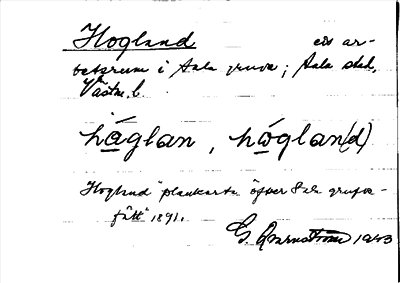 Hogland ett ar-
betsrum i Sala gruva; Sala stad,
Västm. l.
håglan, hòglan(d)
Hogland "plankarta öfver Sala grufve-
fält" 1891.
G. Qvarnström 1943